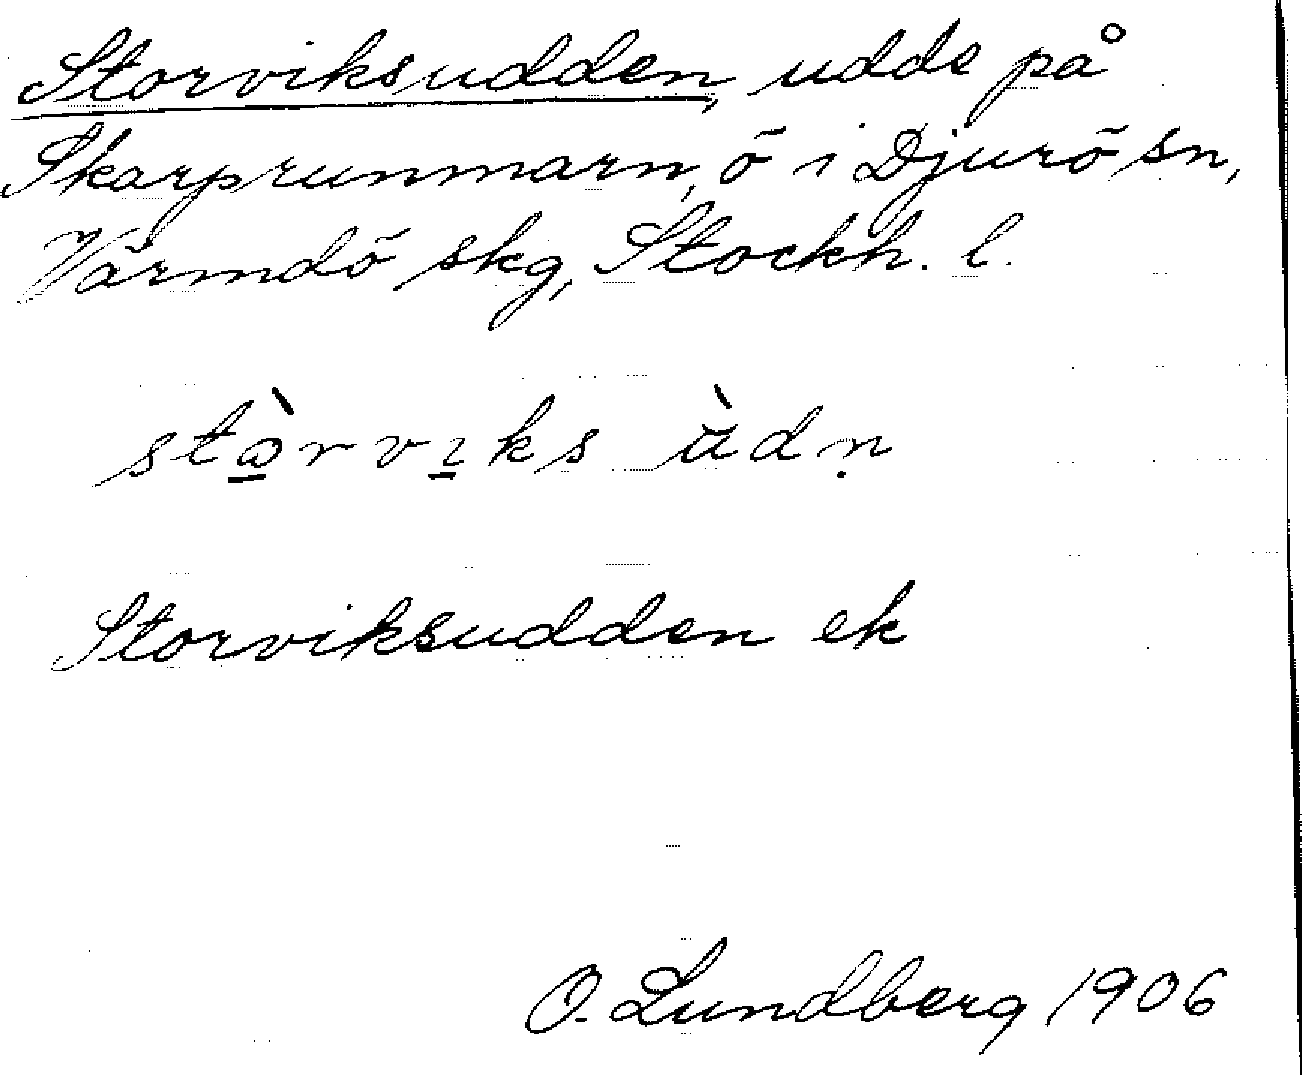 Storviksudden, udde på
Skarprunmarn, ö i Djurö sn,
Värmdö skg, Stockh. l.
stòrviks ùdṇ
Storviksudden ek
O. Lundberg 1906